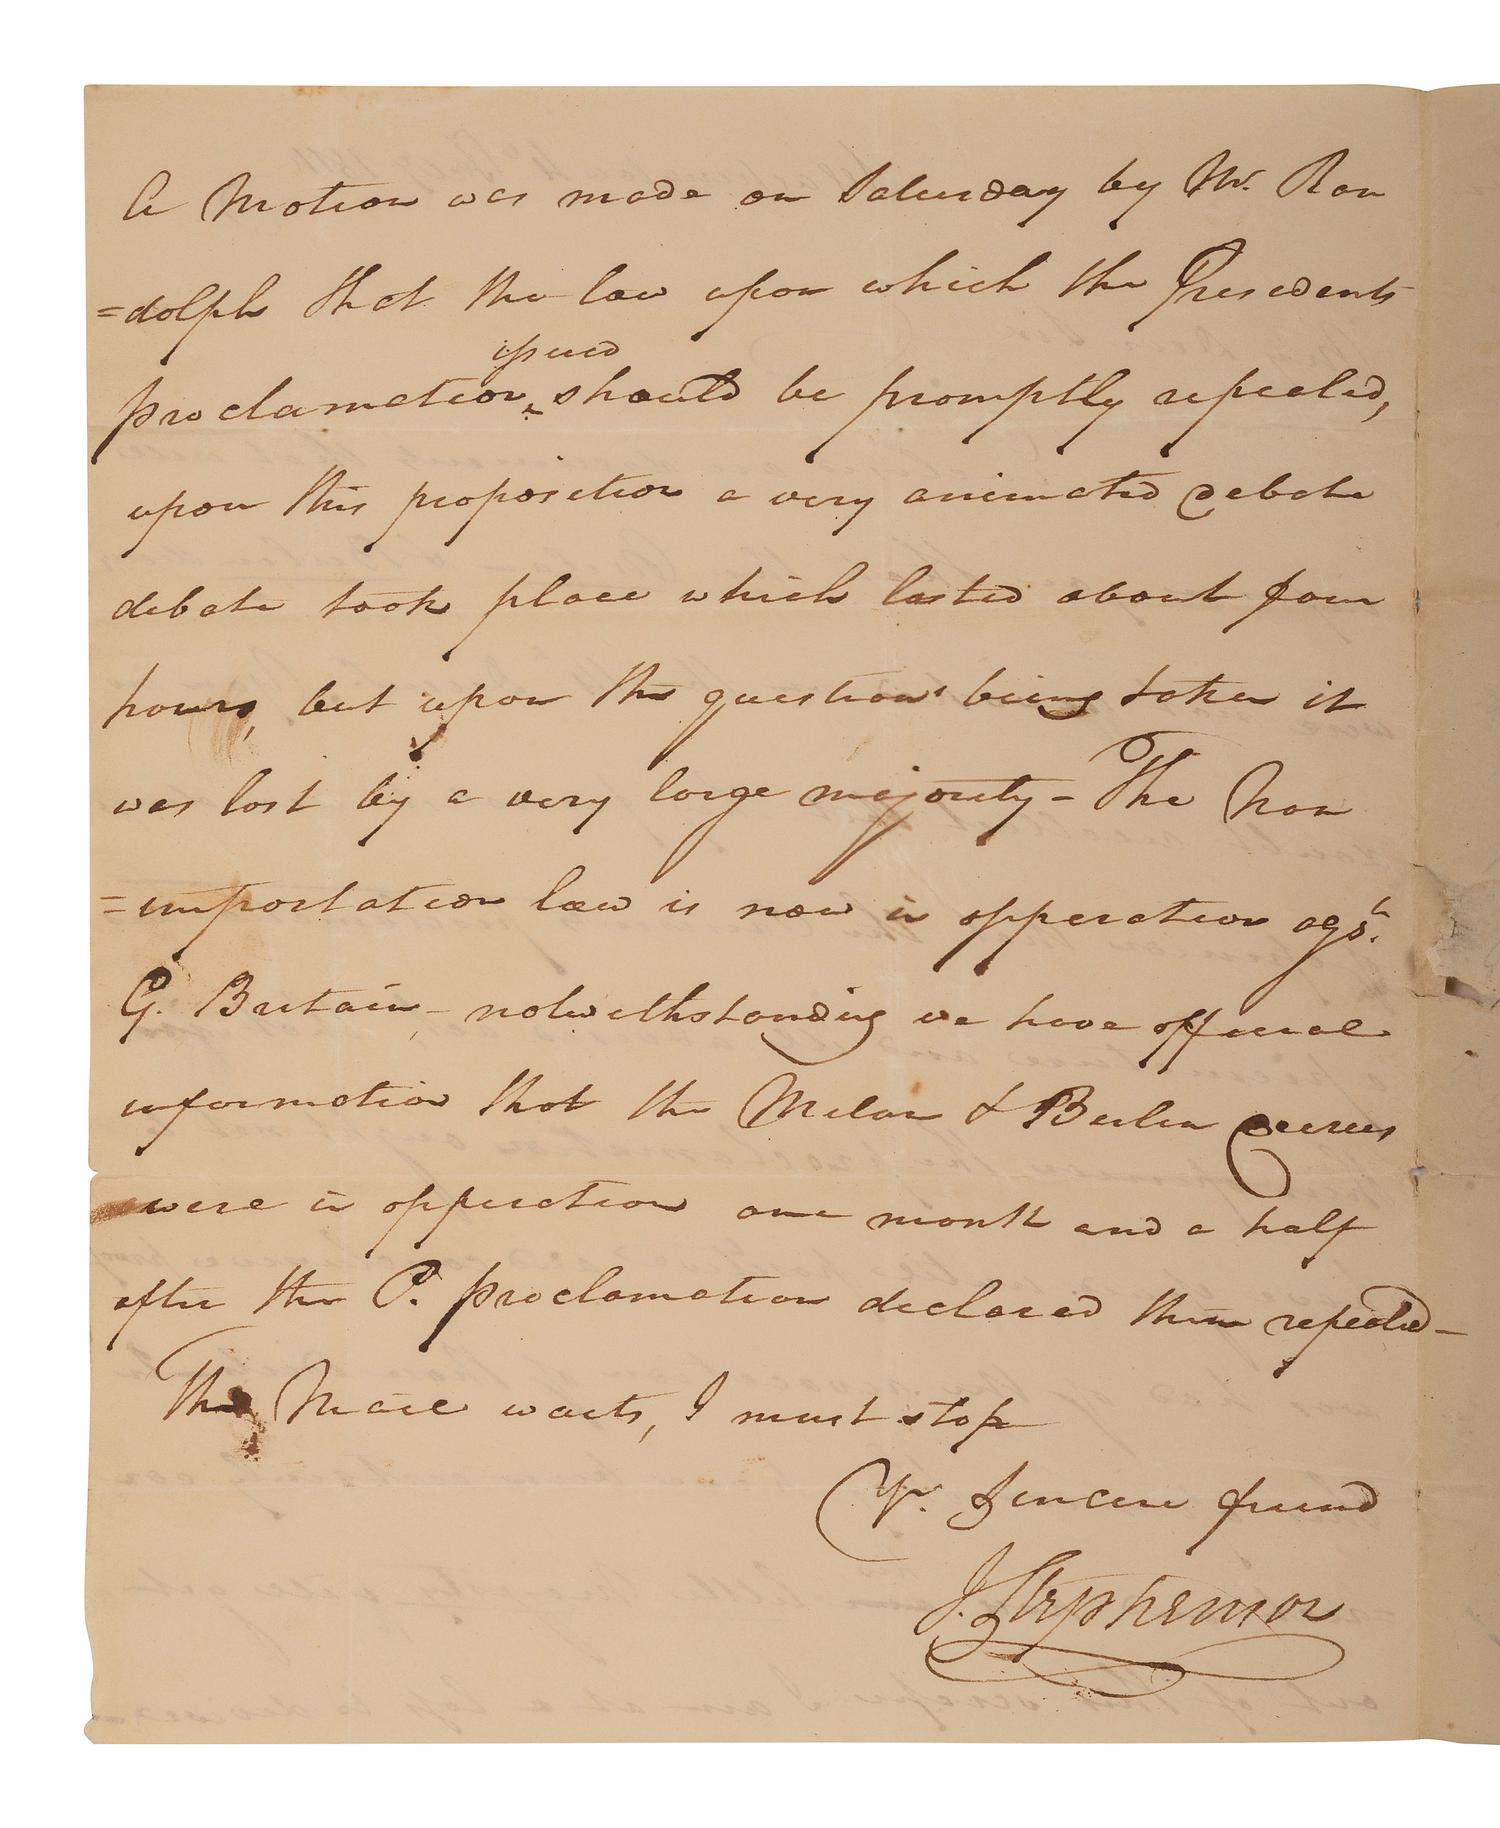 A Motion was made on Saturday by Mr. Ran
=dolph that the law upon which the Presidents
issued
proclamation ‸ should be promptly repealed,
upon this proposition a very animated debate
debate took place which lasted about four
hours, but upon the question being taken it
was lost by a very large majority – The Non
=importation law is now in opperation agst.
G. Britain – notwithstanding we have official
information that the Milan & Berlin decrees
were in opperation one month and a half
after the P. proclamation declared them repealed –
The Mail waits, I must stop
Yr. Sincere friend
J. Stephenson